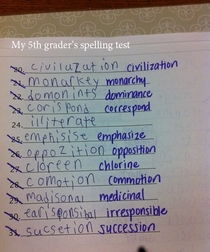 My 5th grader's spelling test
20. civiluzation civilization
21. monarkey monarchy
22. domonints dominance
23. corispond correspond
24. illiterate
25. emphisise emphasize
26. oppozition opposition
27. cloreen chlorine
28. comotion commotion
29. madisonal medicinal
30. earisponsital irresponsible
31. sucsetion succession